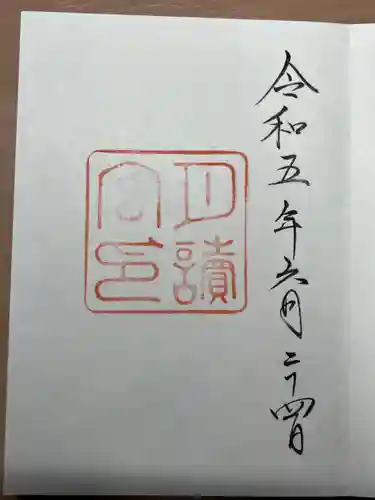 令和五年六月二十四日
月讀
宮印